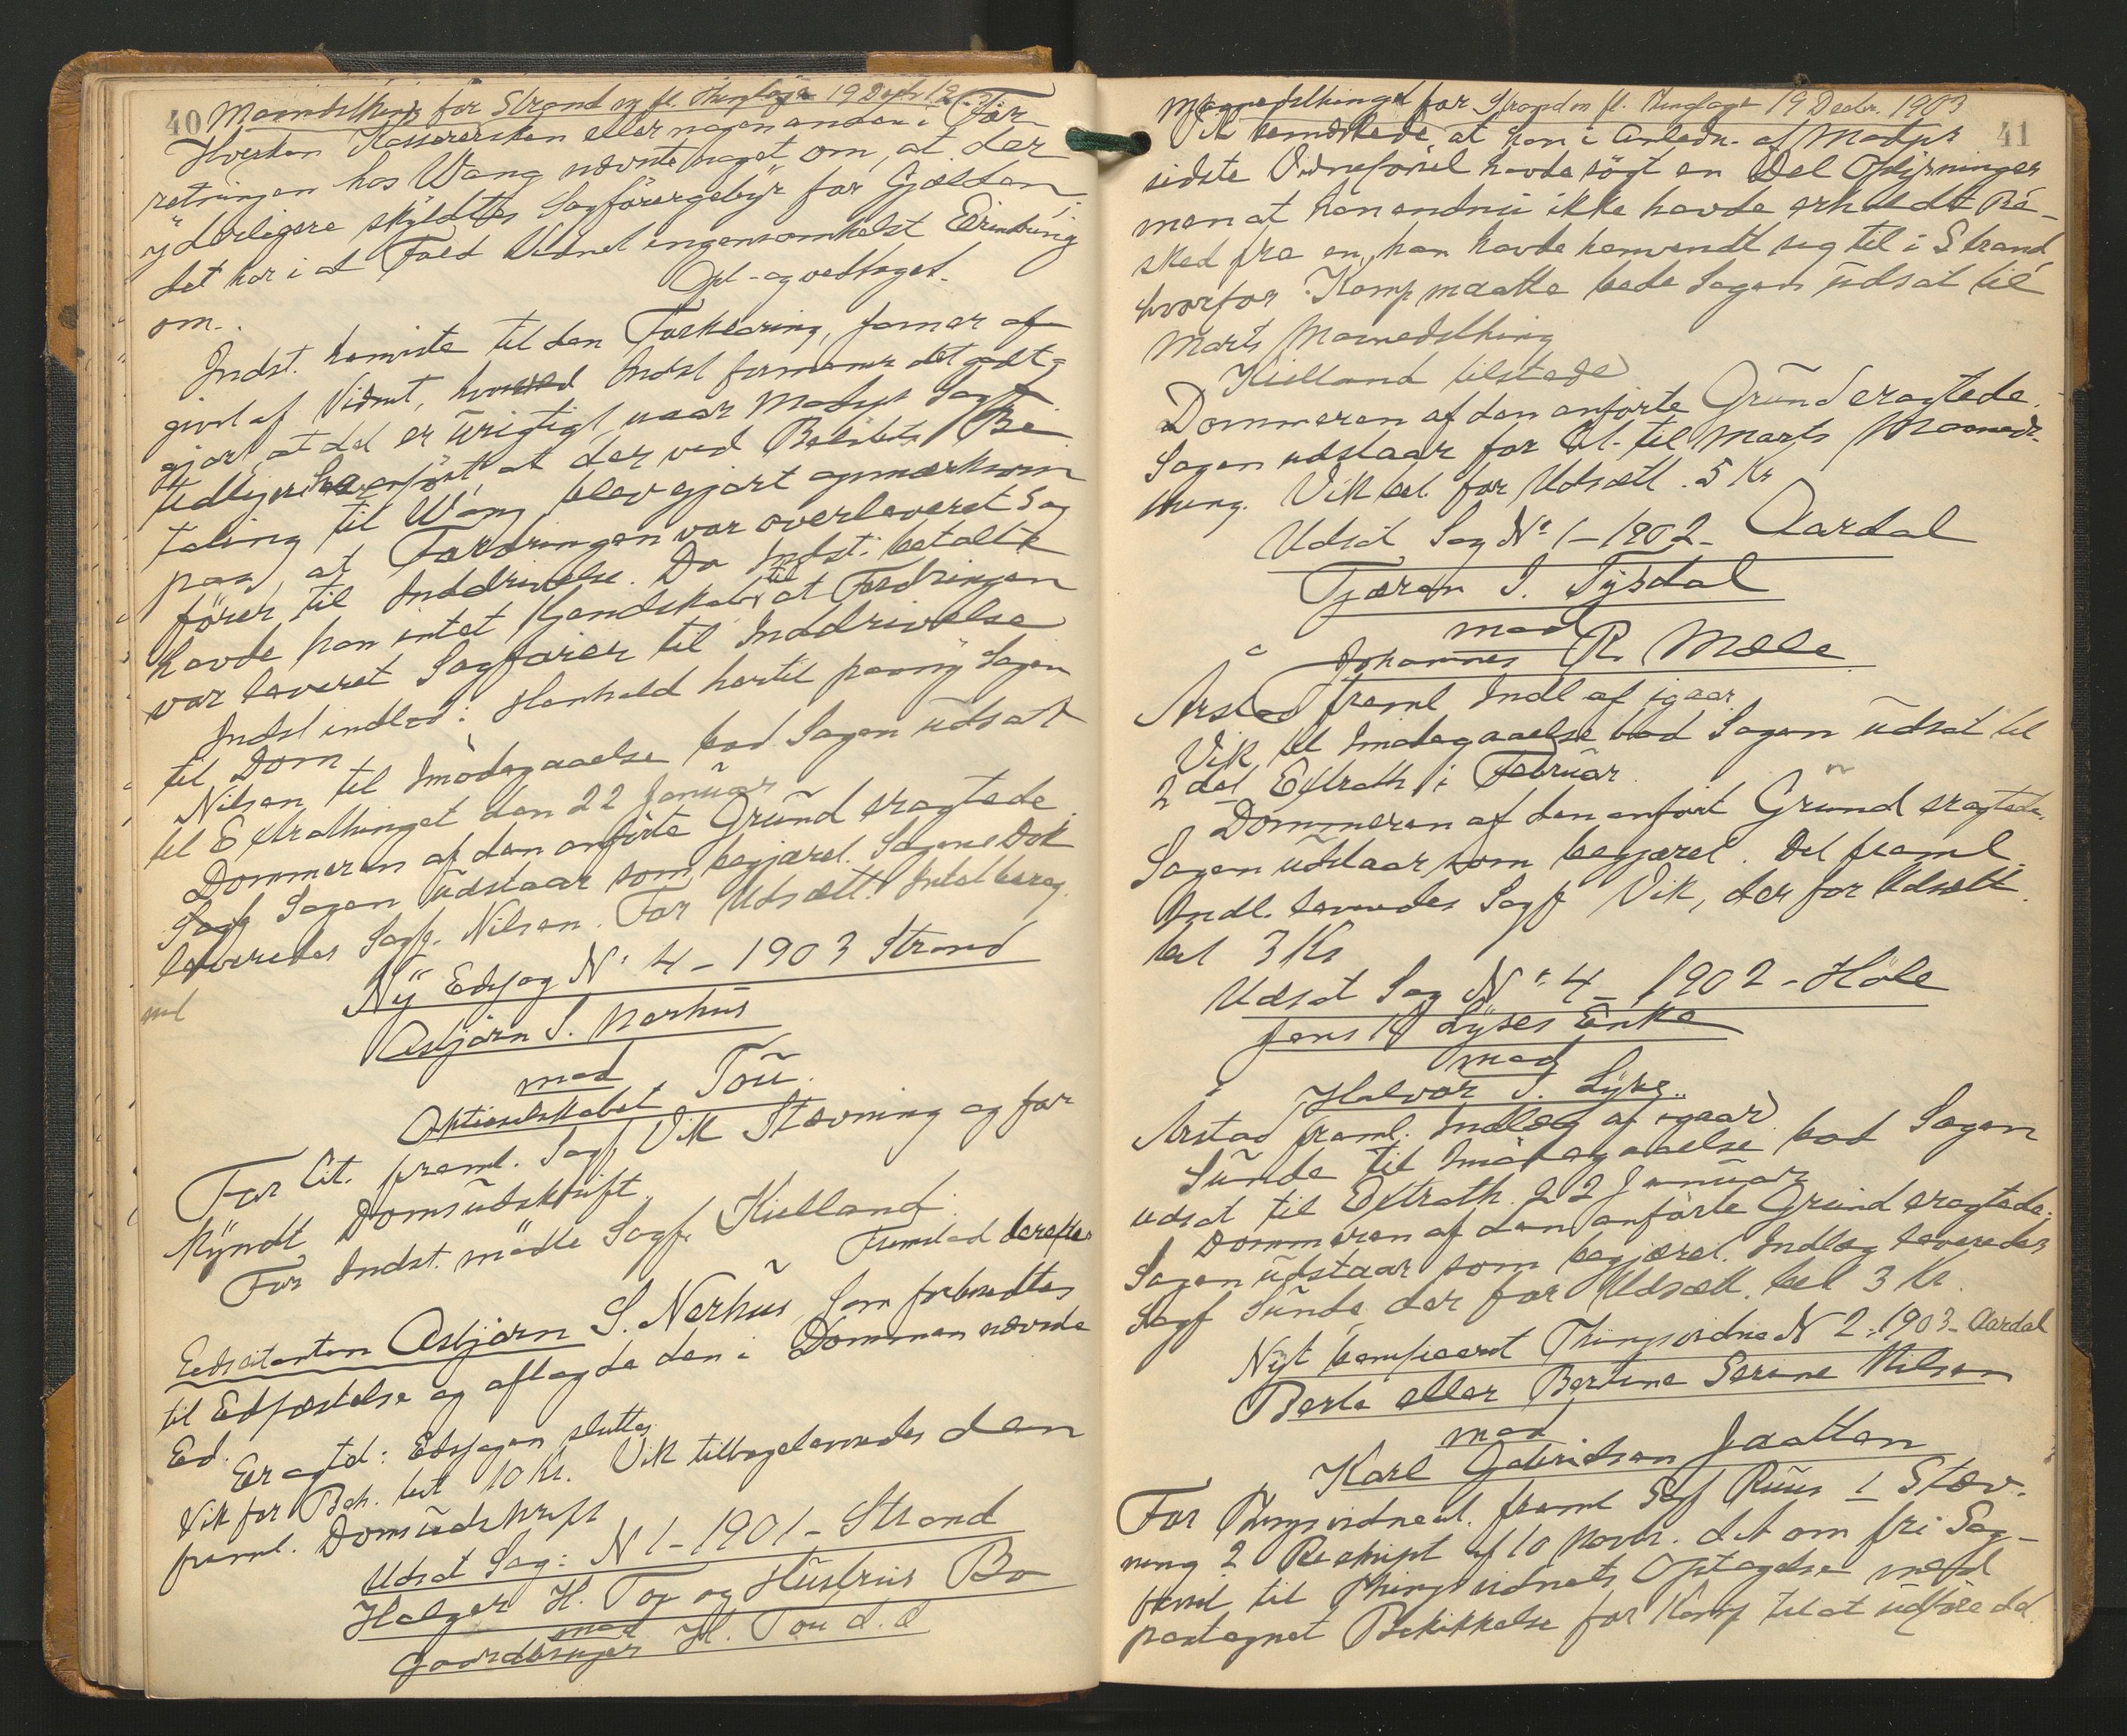 40 Maanedsthing for Strand m. fl. Thinglage 19 Decbr 1903
Hverken Kassarersken eller nogen anden i For-
retningen hos Wang nævnte noget om, at der
yderligere skyldtes Sagførergebyr for Gjælden,
det har i al Fald Vidnet ingensomhelst Erindring
om. Opl- og vedtaget.
Indst. henviste til den Forklaring, som er af
givet af Vidnet, hvorved Indst formener det godt-
gjort, at det er urigtigt, naar Modpt Sagf.
tidligere har anført, at der ved Beløbets Be
taling til Wang blev gjort opmærksom
paa, at Fordringen var overleveret Sag
fører til Inddrivelse. Da Indst. betalte
havde han intet Kjendskab til at Fordringen
var leveret Sagfører til Inddrivelse
Indst indlod i Henhold hertil paany Sagen
til Dom
Nilsen til Imødegaaelse bad Sagen udsat
til Extrathinget den 22 Januar
Dommeren af den anførte Grund eragtede
Sagf Sagen udstaar som begjæret. Sagens Dok
leveredes Sagf. Nilsen. For Udsætt. Intet bereg.
Ny Edsag No 4 - 1903 Strand
Asbjørn S. Nerhus
mod
Aktieselskabet Tou.
For Cit. freml. Sagf Vik Stævning og for
kyndt Domsudskrift
For Indst. mødte Sagf. Kielland.
Fremstod derefter
Edscitanten Asbjørn S. Nerhus, som forberedtes
til Edfæstelse og aflagde den i Dommen nævnte
Ed.
Eragtd: Edssagen sluttes
Vik for Beh. bet 10 Kr. Vik tilbageleveredes den
freml. Domsudskrift
Udsat Sag: N 1 - 1901 - Strand
Holger H. Tou og Hustrus Bo
mod
Gaardbruger H. Tou d. æ
Maanedsthinget for Strand m fl. Thinglage 19 Decbr. 1903
41
Vik bemærkede at han i Anledn. af Modpts
sidste Vidneførsel havde søgt en Del Oplysninger
men at han endnu ikke havde erholdt Be-
sked fra en, han havde henvendt sig til i Strand,
hvorfor Komp maatte bede Sagen udsat til
Marts Maanedsthing
Kielland tilstede
Dommeren af den anførte Grund eragtede.
Sagen udstaar for til Marts Maaneds-
thing. Vik bet. for Udsætt. 5 Kr
Udsat Sag No 1 - 1902 - Aardal
Tjæran I. Tysdal
mod
Johannes R. Mæle
Arstad freml Indl af igaar
Vik til Imødegaaelse bad Sagen udsat til
2det Extrath i Februar
Dommeren af den anført Grund eragtede.
Sagen udstaar som begjæret. Det freml.
Indl. leveredes Sagf Vik, der for Udsætt.
bet 3 Kr
Udsat Sag No 4 - 1902 - Høle
Jens Lyses Enke
mod
Halvor T. Lyse..
Arstad freml. Indlæg af igaar
Sunde til Imødegaaelse bad Sagen
udsat til Extrath. 22 Januar
Dommeren af den anførte Grund eragtede.
Sagen udstaar som begjæret. Indlæg leveredes
Sagf Sunde, der for Udsætt. bet 3 Kr.
Nyt beneficeret Thingsvidne N 2. 1903 - Aardal
Berte eller Bertine Serine Nilsen
mod
Karl Gabrielsen Jaatten
For Thingsvidnecit. freml Sagf Ruus 1 Stæv-
ning 2 Reskript af 10 Novbr. d. A om fri Sag-
førsel til Thingsvidnets Optagelse med
paategnet Beskikkelse for Komp til at udføre det